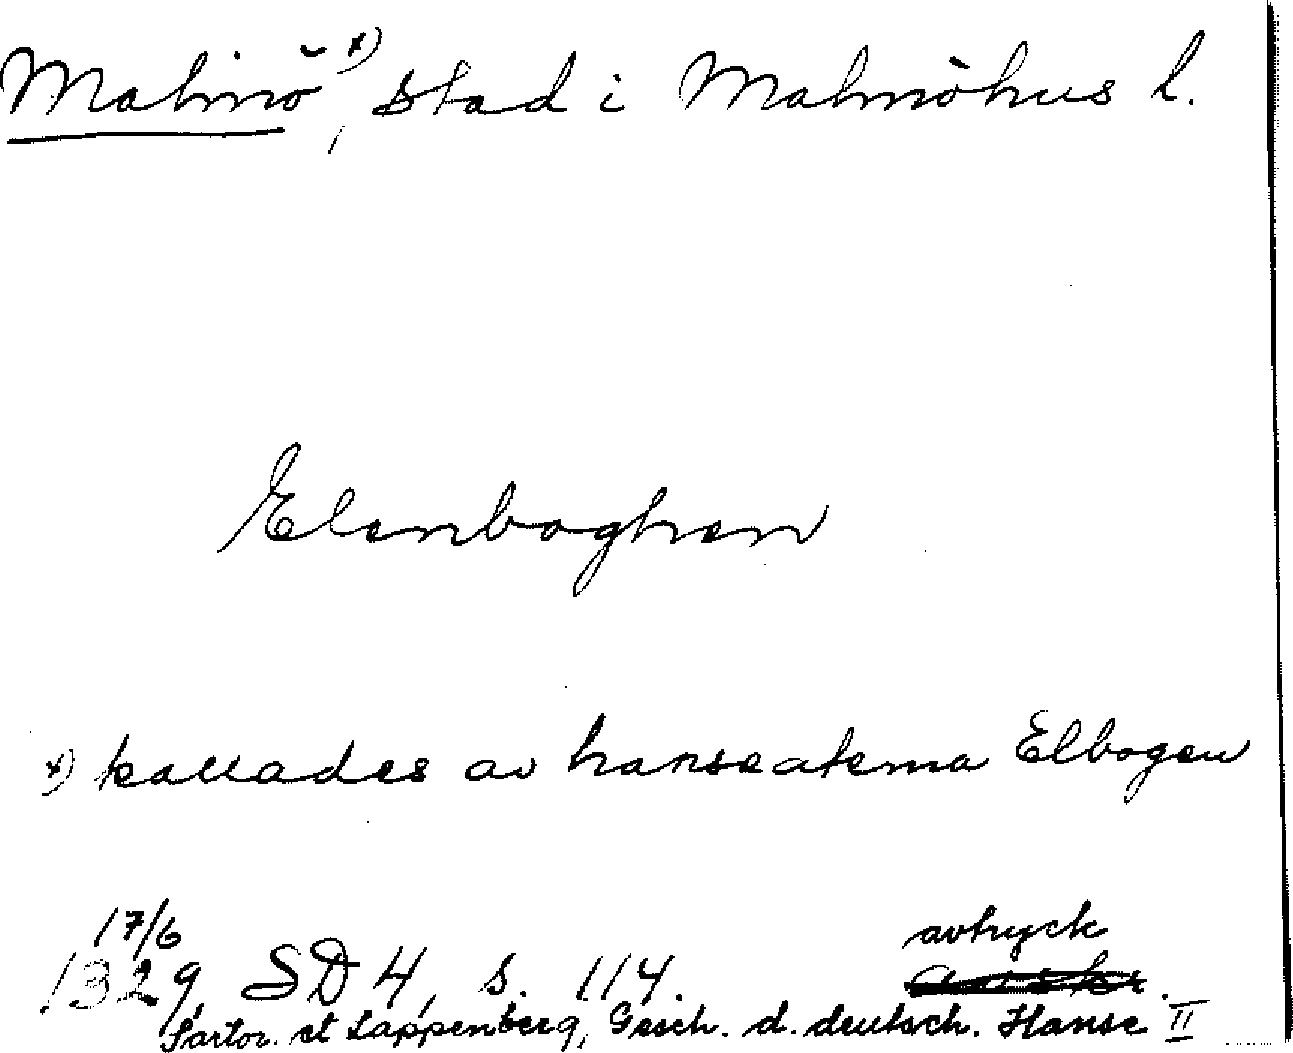 Malmö x), stad i Malmöhus l.
Elenboghen
x) kallades av hanseaterna Elbogen
17/6
avtryck
1329, SD 4, s. 114.
Sartor. et Lappenberg, Gesch. d. deutsch. Hanse II